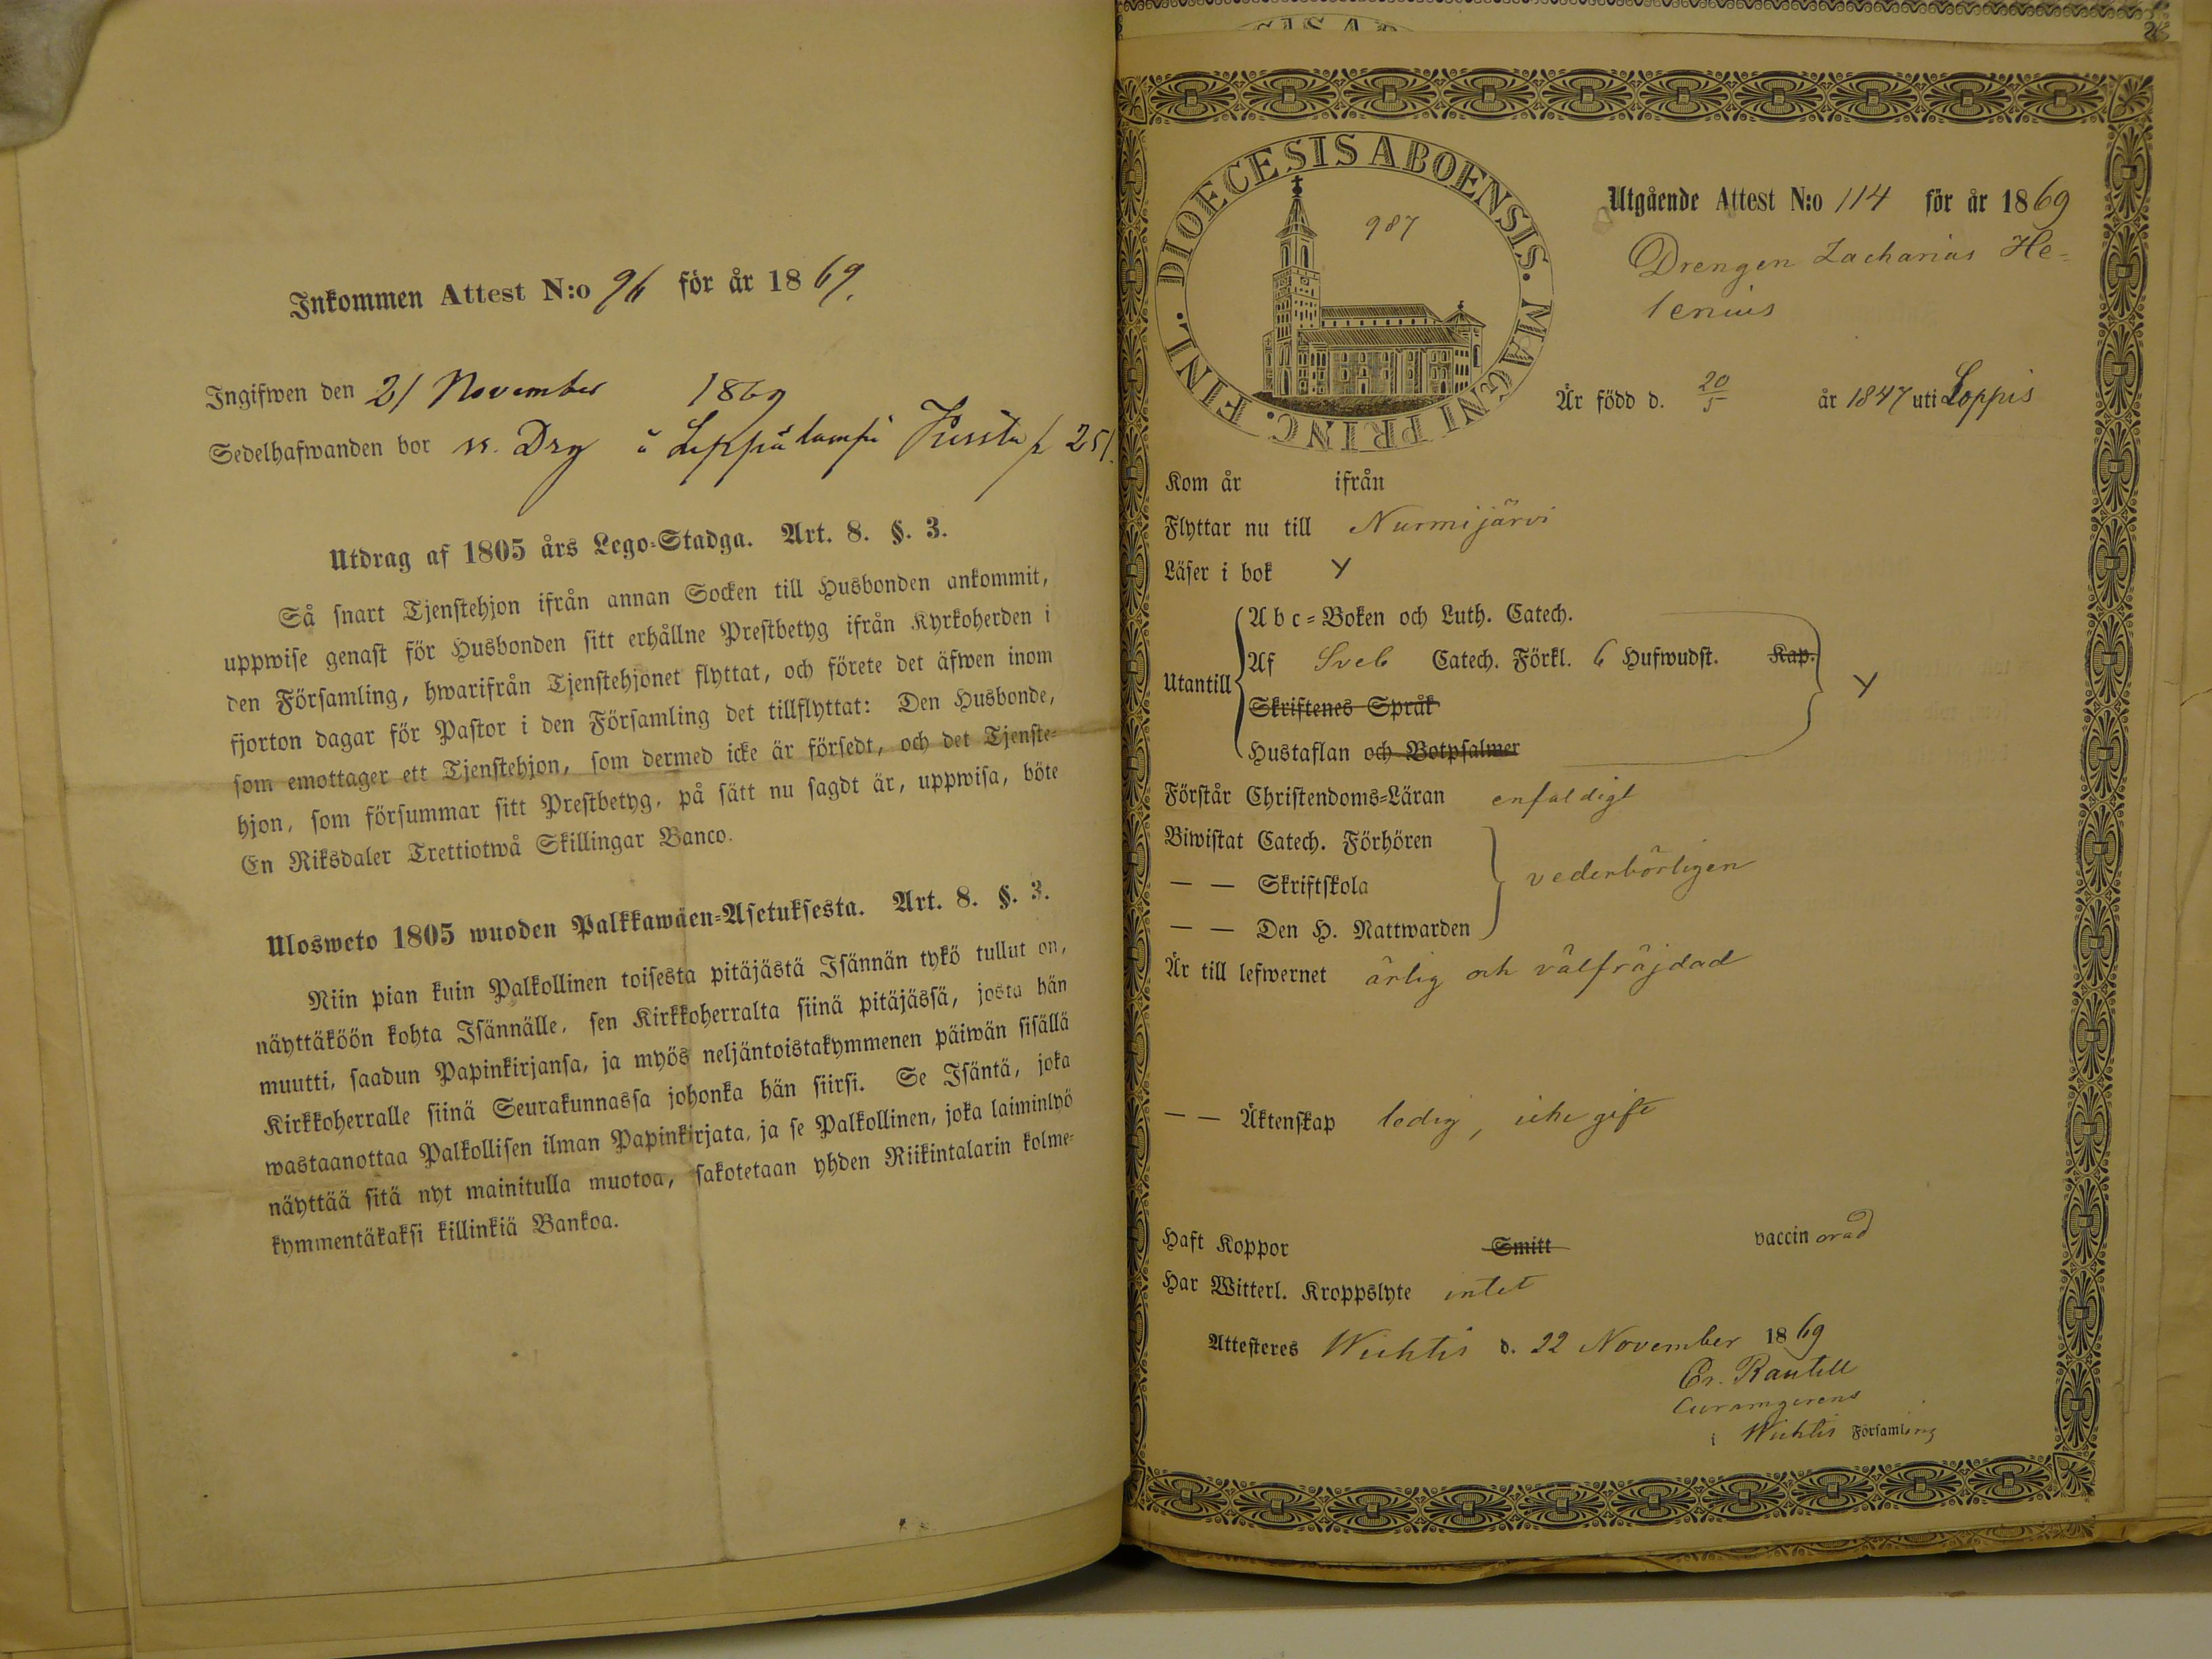 Inkommen Attest N:o 96 för år 1869.
Ingifwen den 21 November 1869
Sedelhafwanden bor ss. Drg å Leppälampi Jussila p 251.
Utdrag af 1805 års Lego-Stadga. Art. 8. §. 3.
Så snart Tjenstehjon ifrån annan Socken till Husbonden ankommit,
uppwise genast för Husbonden sitt erhållne Prestbetyg ifrån Kyrkoherden i
den Församling, hwarifrån Tjenstehjonet flyttat, och förete det äfwen inom
fjorton dagar för Pastor i den Församling det tillflyttat: Den Husbonde,
som emottager ett Tjenstehjon, som dermed icke är försedt, och det Tjenste-
hjon, som försummar sitt Prestbetyg, på sätt nu sagdt är, uppwisa, böte
En Riksdaler Trettiotwå Skillingar Banco.
Ulosweto 1805 wuoden Palkkawäen-Asetuksesta. Art. 8. §. 3.
Niin pian kuin Palkollinen toisesta pitäjästä Isännän tykö tullut on,
näyttäköön kohta Isännälle, sen Kirkkoherralta siinä pitäjässä, josta hän
muutti, saadun Papinkirjansa, ja myös neljäntoistakymmenen päiwän sisällä
Kirkkoherralle siinä Seurakunnassa johonka hän siirsi. Se Isäntä, joka
wastaanottaa Palkollisen ilman Papinkirjata, ja se Palkollinen, joka laiminlyö
näyttää sitä nyt mainitulla muotoa, sakotetaan yhden Riikintalarin kolme-
kymmentäkaksi killinkiä Bankoa.
DIOECESIS ABOENSIS. MAGNI PRINC. FINL.
987
Utgående Attest N:o 114 för år 1869
Drengen Zacharias He-
lenius
Är född d. 20/5 år 1847 uti Loppis
Kom år ifrån
Flyttar nu till Nurmijärvi
Läser i bok Y
Utantill
Abc-Boken och Luth. Catech.
Af Sveb Catech. Förkl. 6 Hufwudst. Kap.
Skriftenes Språk
Hustaflan och Botpsalmer
Y
Förstår Christendoms-Läran enfaldigt
Biwistat Catech. Förhören
— — Skriftskola vederbörligen
— — Den H. Nattwarden
Är till lefwernet ärlig och välfräjdad
— — Äktenskap ledig, icke gift
Haft Koppor Smitt vaccinerad
Har Witterl. Kroppslyte intet
Attesteres Wichtis d. 22 November 1869
Er. Rautell
Curamgerens
i Wichtis Församling